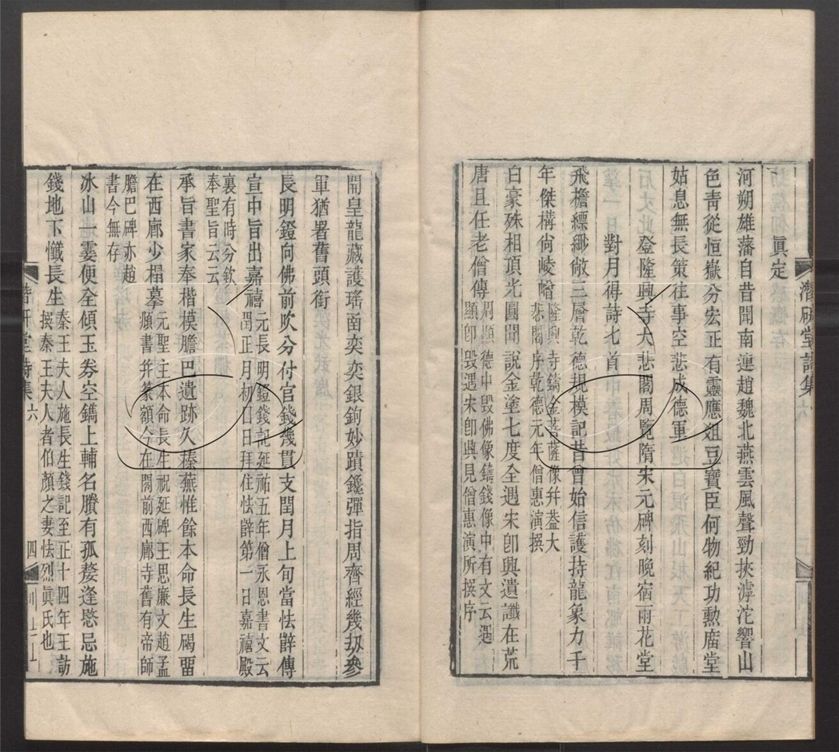 真定
河朔雄藩自昔聞南連趙魏北燕雲風聲勁挾滹沱響山
色青從恒嶽分宏正有靈應俎豆寶臣何物紀功勲廟堂
姑息無長策往事空悲成德軍
登隆興寺大悲閣周覽隋宋元碑刻晚宿雨花堂
對月得詩七首
飛檐縹緲敞三層乾德規模記昔曾始信護持龍象力千
年傑構尚崚嶒隆興寺鑄金菩薩像幷葢大
悲閣序乾德元年僧惠演撰
白豪殊相頂光圓聞說金塗七度全遇宋卽興遺讖在荒
唐且任老僧傳周顯德中毀佛像鑄錢像中有文云遇
顯卽毀遇宋卽興見僧惠演所撰序
開皇龍藏護瑤函奕奕銀鉤妙蹟鑱彈指周齊經幾刼參
軍猶署舊頭銜
長明鐙向佛前吹分付官錢幾貫支閏月上旬當怯薛傳
宣中旨出嘉禧元長明鐙錢記延祐五年僧永恩書文云
閏正月初四日拜住怯薛第一日嘉禧殿
裏有時分欽
奉聖旨云云
承旨書家奉楷模膽巴遺跡久蓁蕪惟餘本命長生碣畱
在西廊少搨摹元聖主本命長生祝延碑王思廉文趙孟
頫書幷篆額今在閣前西廊寺舊有帝師
膽巴碑亦趙
書今無存
冰山一霎便全傾玉劵空鐫上輔名賸有孤嫠逢愍忌施
錢地下懺長生秦王夫人施長生錢記至正十四年王訪
撰秦王夫人者伯顏之妻怯烈眞氏也
潛研堂詩集六
四